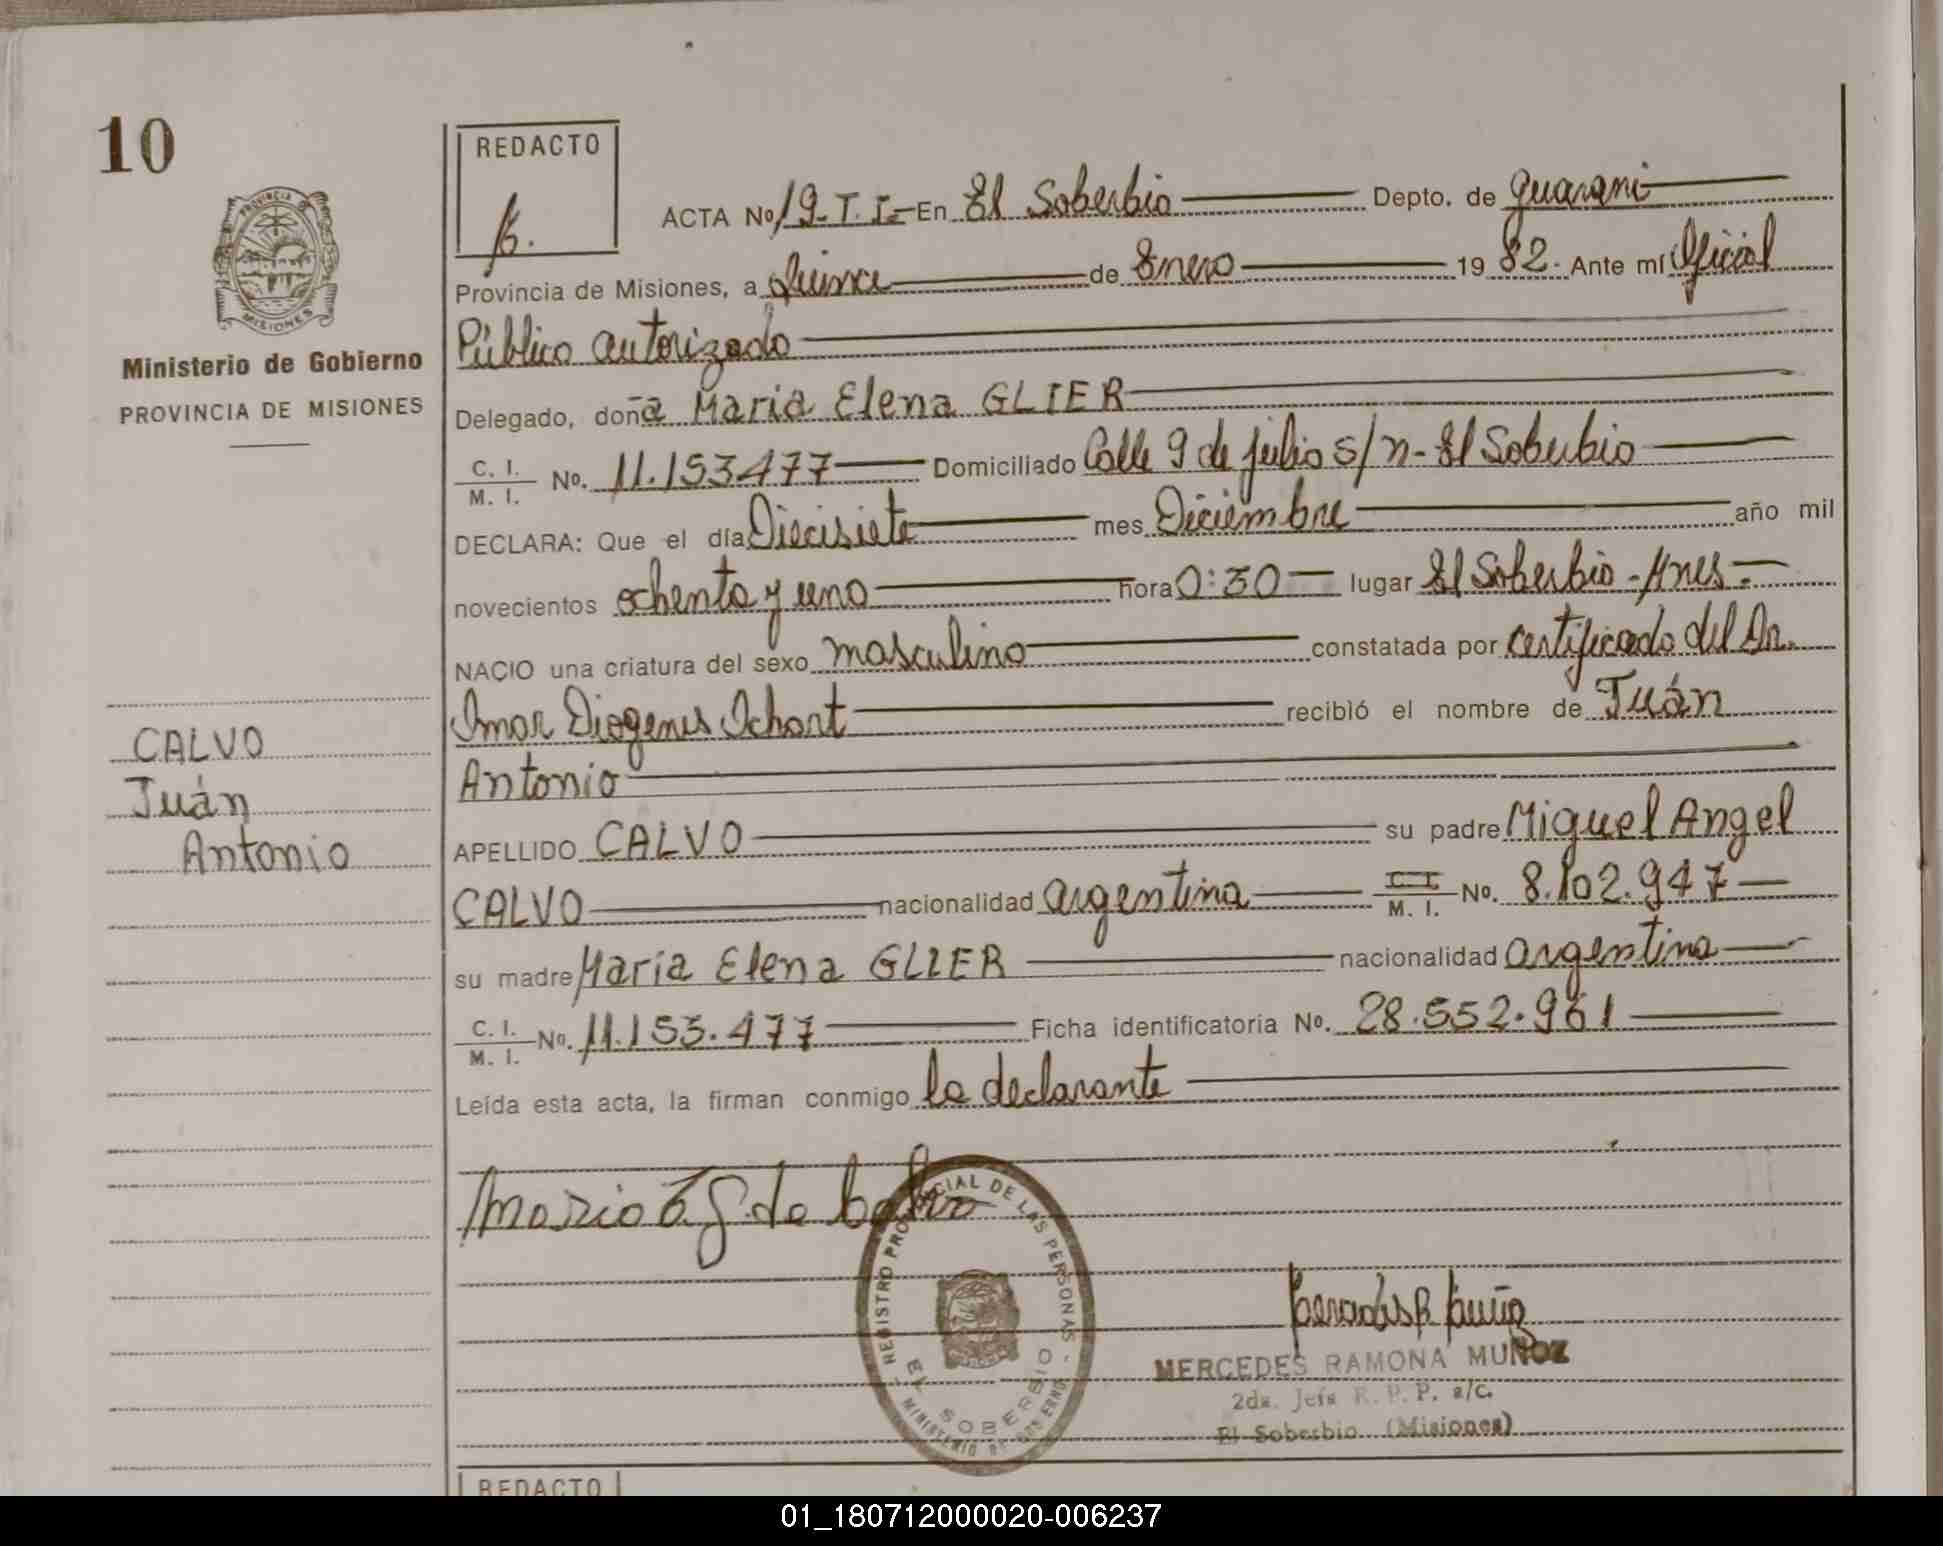 10
PROVINCIA DE
MISIONES
Ministerio de Gobierno
PROVINCIA DE MISIONES
REDACTO
ACTA No 19-T.I.- En El Soberbio Depto. de Guarani
Provincia de Misiones, a Quince de Enero 19 82. Ante mí Oficial
Público autorizado
Delegado, doña Maria Elena GLIER
C. I. M. I. No. 11.153477 Domiciliado Calle 9 de julio s/n - El Soberbio
DECLARA: Que el día Diecisiete mes Diciembre año mil
novecientos ochenta y uno hora 0:30 lugar El Soberbio - Mnes.-
NACIO una criatura del sexo masculino constatada por certificado del Dr.
CALVO
Juán
Antonio
Omar Diogenes Ichart recibió el nombre de Juán
Antonio
APELLIDO CALVO su padre Miguel Angel
CALVO nacionalidad argentina C I M. I. No. 8.102.947
su madre Maria Elena GLIER nacionalidad argentina
C. I. M. I. No. 11.153.477 Ficha identificatoria No. 28.552.961
Leída esta acta, la firman conmigo la declarante
Maria E. G. de Calvo
- REGISTRO PROVINCIAL DE LAS PERSONAS -
MINISTERIO DE GOBIERNO
EL SOBERBIO
MERCEDES RAMONA MUÑOZ
2da. Jefa R. P. P. a/c.
El Soberbio (Misiones)
REDACTO
01_180712000020-006237